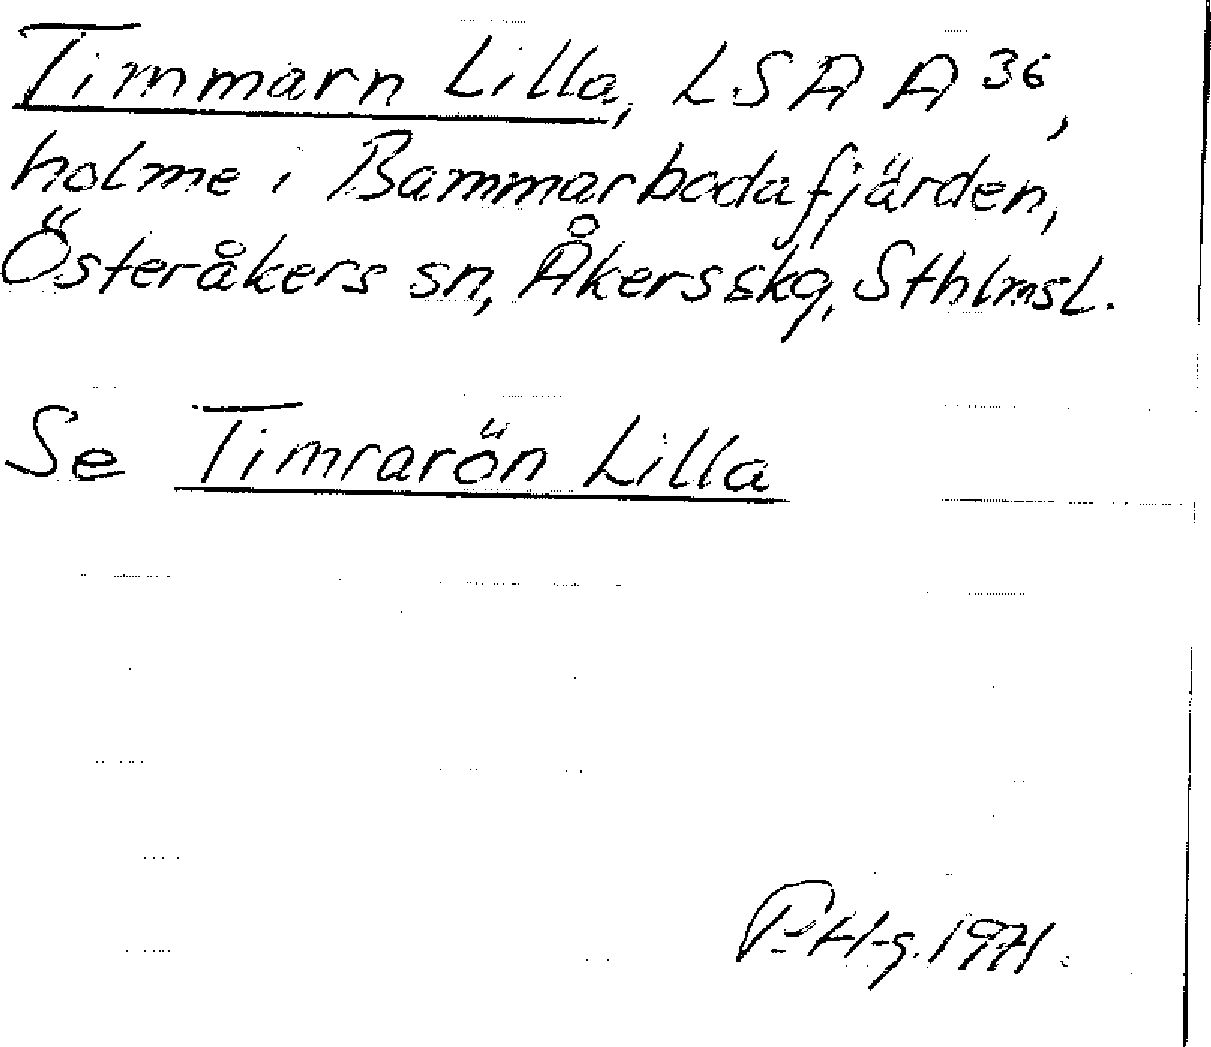 Timmarn Lilla, LSA A 36,
holme i Bammarbodafjärden,
Österåkers sn, Åkers skg, Sthlmsl.
Se Timrarön Lilla
P. H-g. 1971.